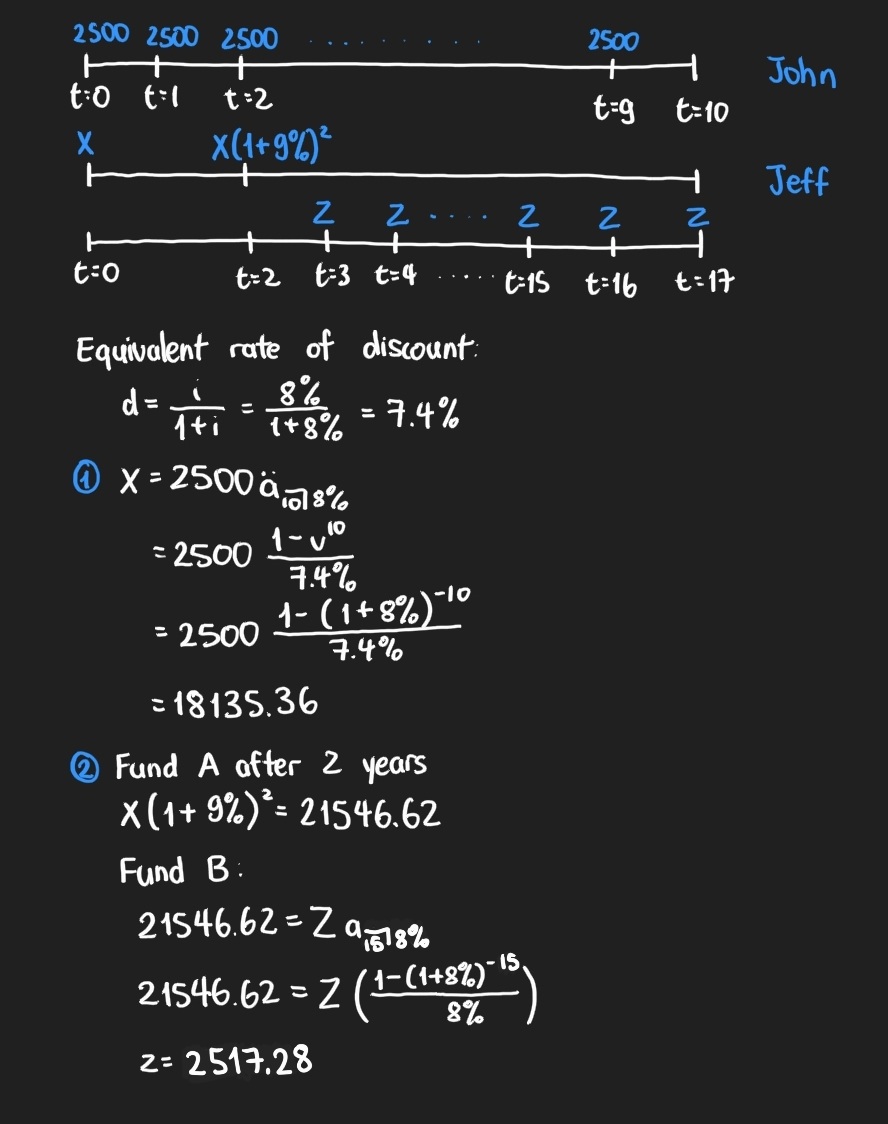 2500 2500 2500 ......... 2500
John
t=0 t=1 t=2 t=9 t=10
X X(1+9%)²
Jeff
Z Z ..... Z Z Z
t=0 t=2 t=3 t=4 ..... t=15 t=16 t=17
Equivalent rate of discount:
d = i/(1+i) = 8%/(1+8%) = 7.4%
① X = 2500 ä_10⌉8%
= 2500 (1-v¹⁰)/7.4%
= 2500 (1-(1+8%)⁻¹⁰)/7.4%
= 18135.36
② Fund A after 2 years
X(1+9%)² = 21546.62
Fund B:
21546.62 = Z a_15⌉8%
21546.62 = Z ((1-(1+8%)⁻¹⁵)/8%)
z = 2517.28